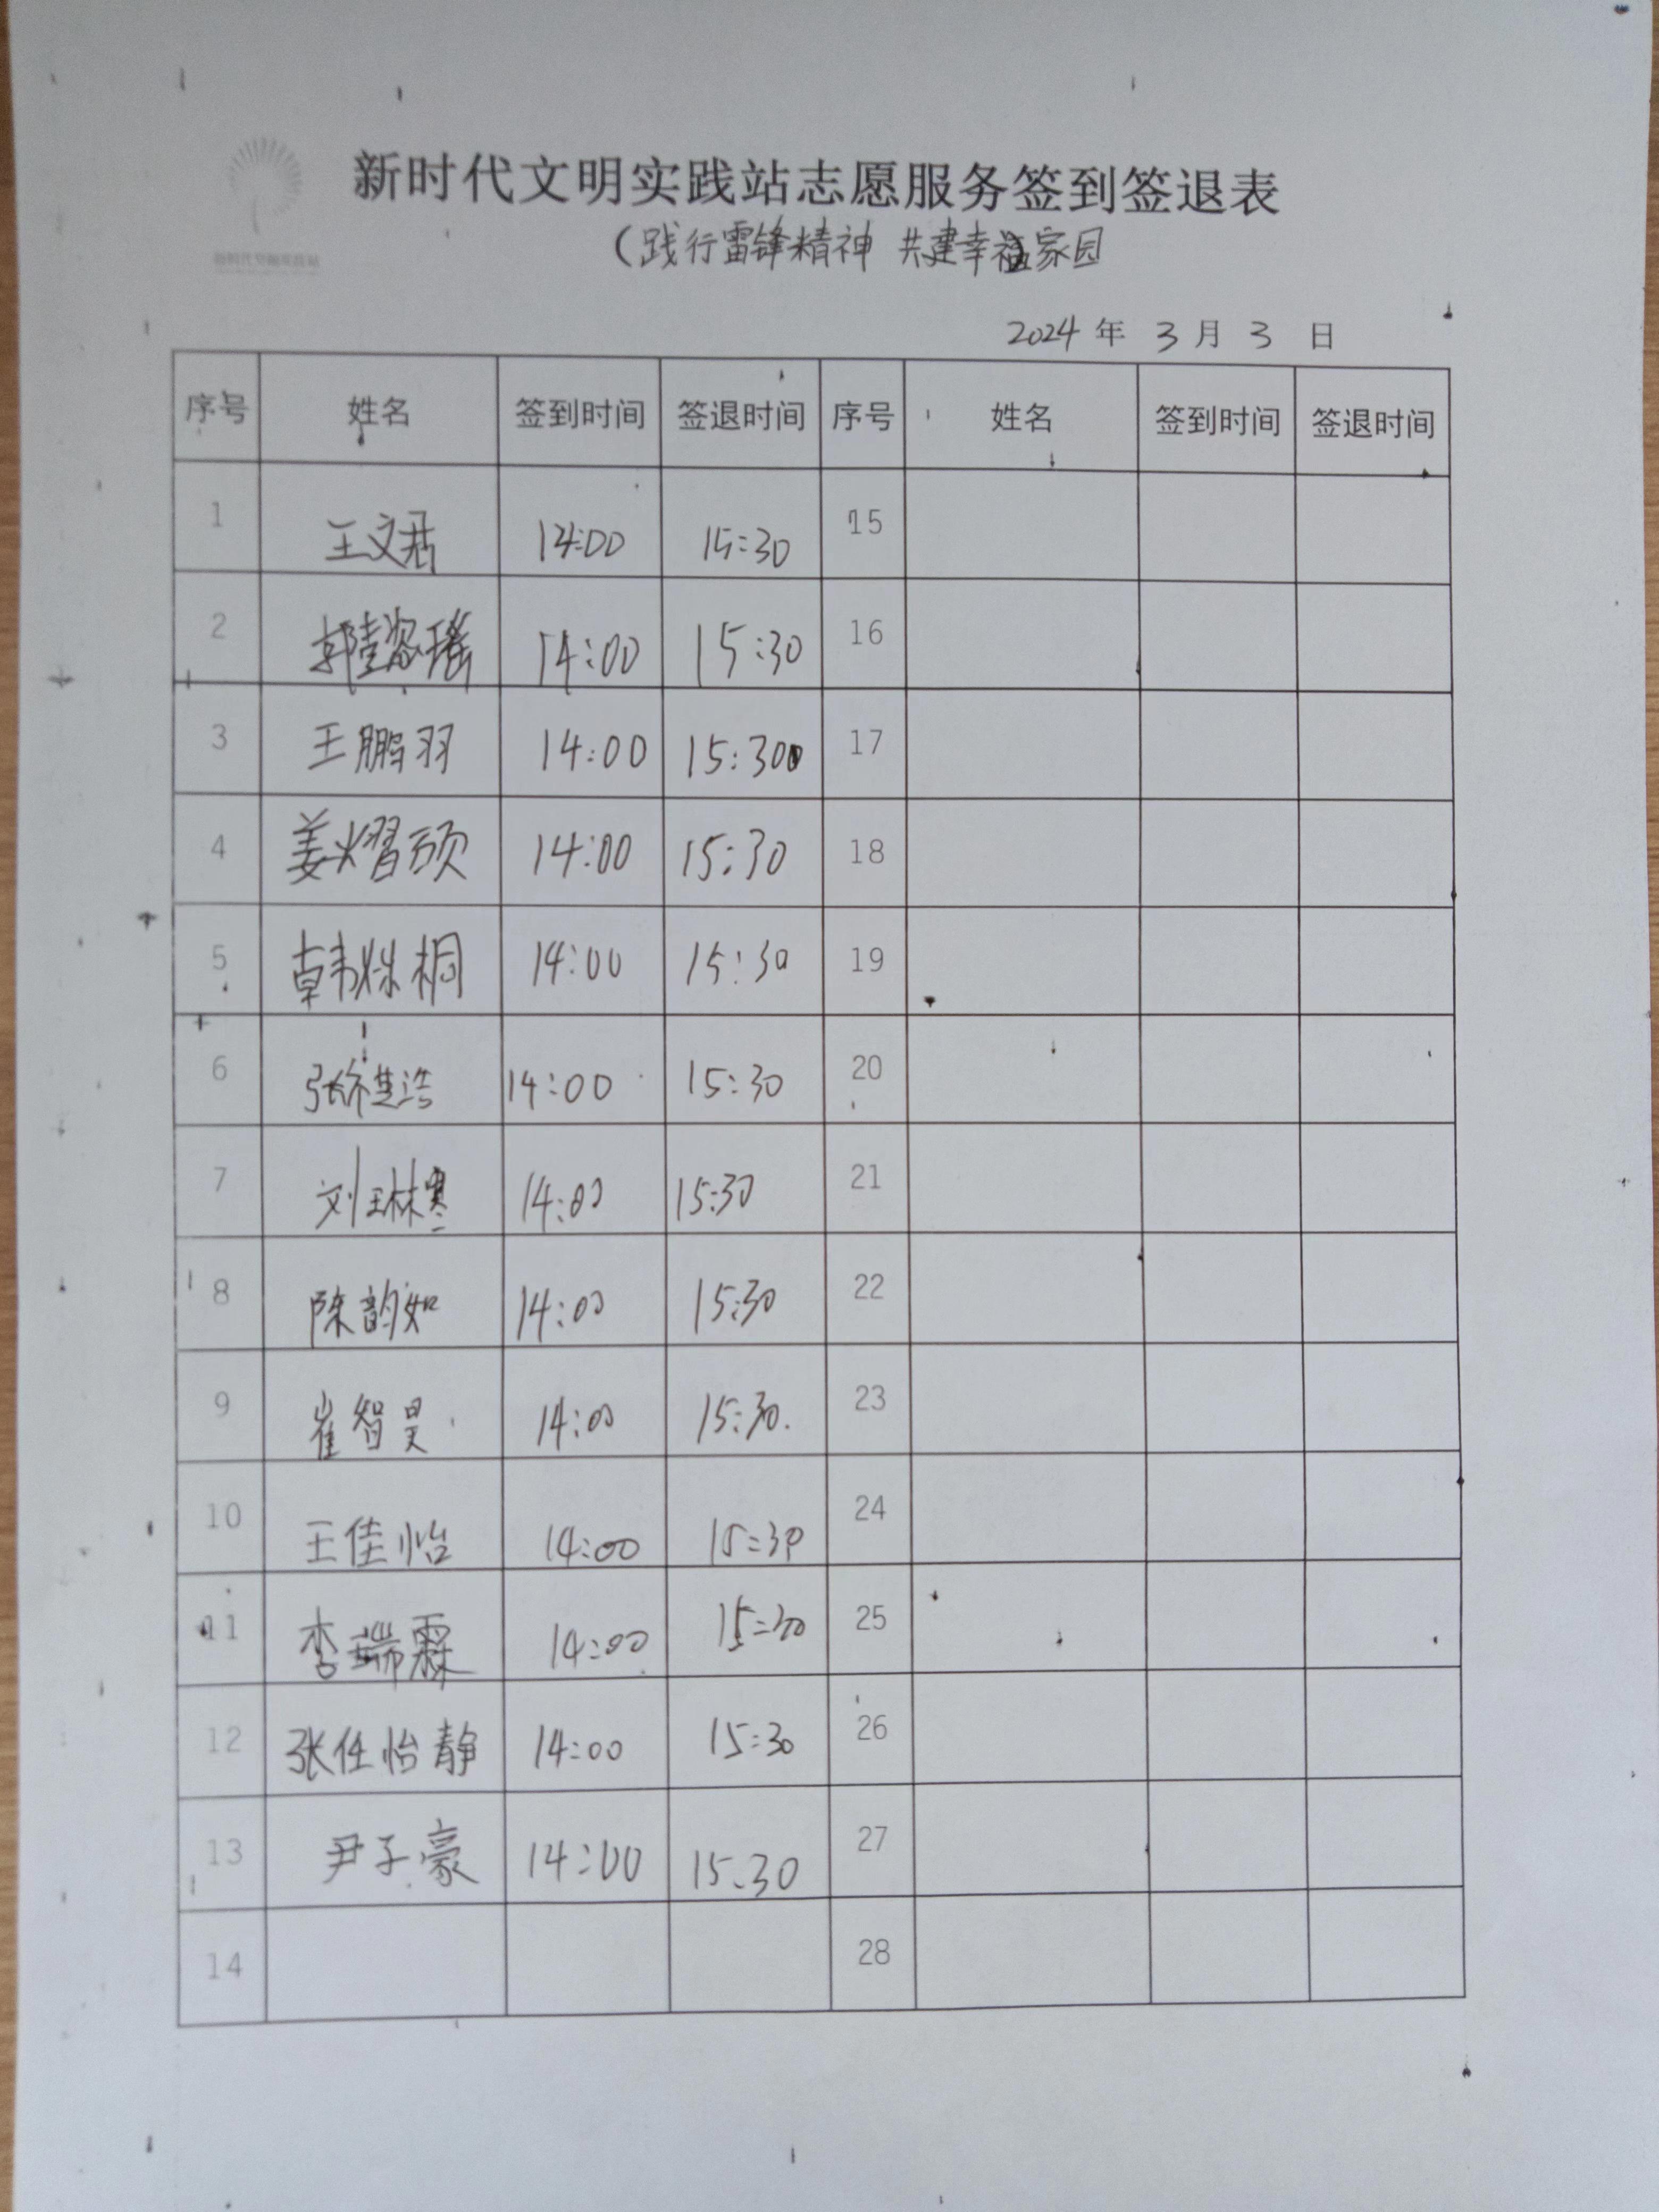 新时代文明实践站志愿服务签到签退表
（践行雷锋精神 共建幸福家园
2024 年 3 月 3 日
序号 姓名 签到时间 签退时间 序号 姓名 签到时间 签退时间
1 王文君 14:00 15:30 15
2 郭 瑶 14:00 15:30 16
3 王鹏羽 14:00 15:30 17
4 姜熠硕 14:00 15:30 18
5 韩烁桐 14:00 15:30 19
6 张 浩 14:00 15:30 20
7 刘琳寒 14:00 15:30 21
8 陈韵如 14:00 15:30 22
9 崔智昊 14:00 15:30. 23
10 王佳怡 14:00 15:30 24
11 李瑞霖 14:00 15:30 25
12 张任怡静 14:00 15:30 26
13 尹子豪 14:00 15:30 27
14 28